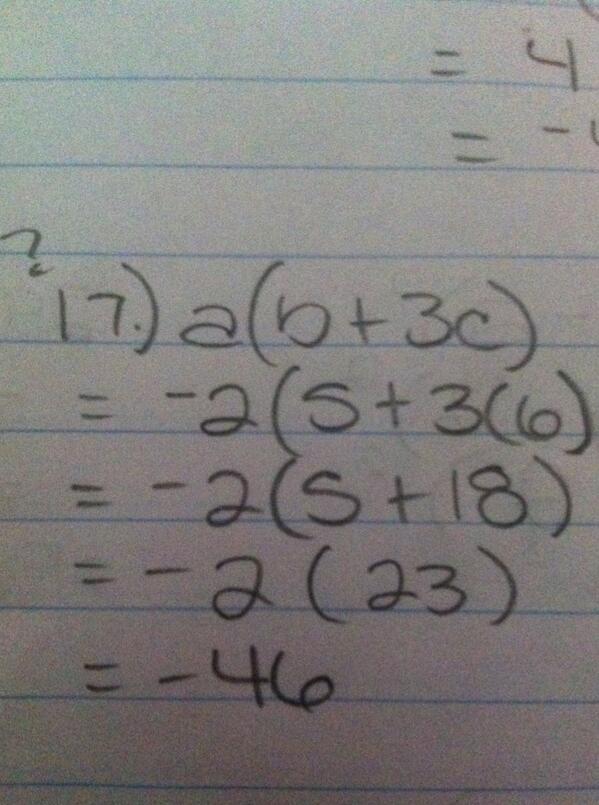 = 4
= -
?
17.) a(b+3c)
= -2(5+3(6)
= -2(5+18)
= -2(23)
= -46